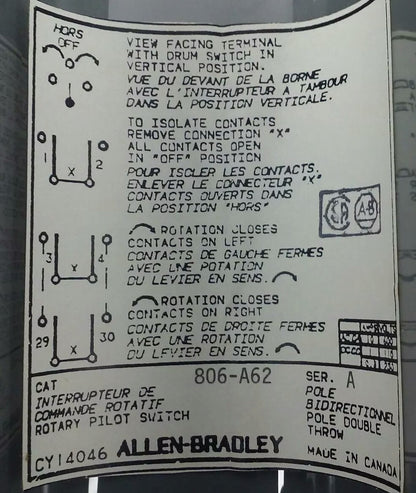 HORS
OFF
VIEW FACING TERMINAL
WITH DRUM SWITCH IN
VERTICAL POSITION.
VUE DU DEVANT DE LA BORNE
AVEC L'INTERRUPTEUR A TAMBOUR
DANS LA POSITION VERTICALE.
1 X 2
TO ISOLATE CONTACTS
REMOVE CONNECTION "X"
ALL CONTACTS OPEN
IN "OFF" POSITION
POUR ISOLER LES CONTACTS.
ENLEVER LE CONNECTEUR "X"
CONTACTS OUVERTS DANS
LA POSITION "HORS"
A-B
3 X 4
ROTATION CLOSES
CONTACTS ON LEFT
CONTACTS DE GAUCHE FERMES
AVEC UNE ROTATION
DU LEVIER EN SENS.
29 X 30
ROTATION CLOSES
CONTACTS ON RIGHT
CONTACTS DE DROITE FERMES
AVEC UNE ROTATION
DU LEVIER EN SENS.
CAT 806-A62 SER. A
INTERRUPTEUR DE
COMMANDE ROTATIF
ROTARY PILOT SWITCH
POLE
BIDIRECTIONNEL
POLE DOUBLE
THROW
CY14046 ALLEN-BRADLEY MADE IN CANADA